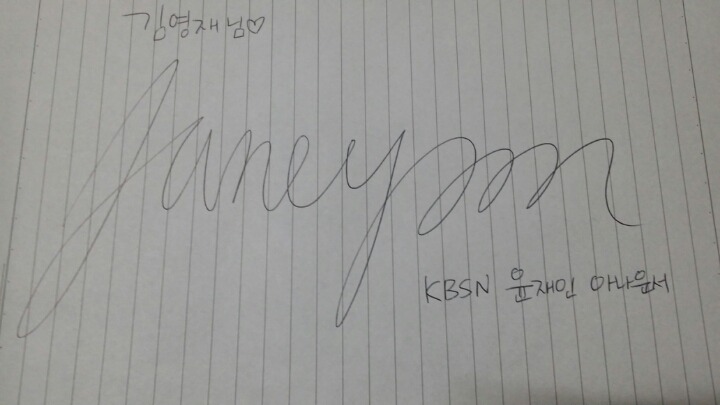 김영재님♡
Janeyoon
KBSN 윤재인 아나운서